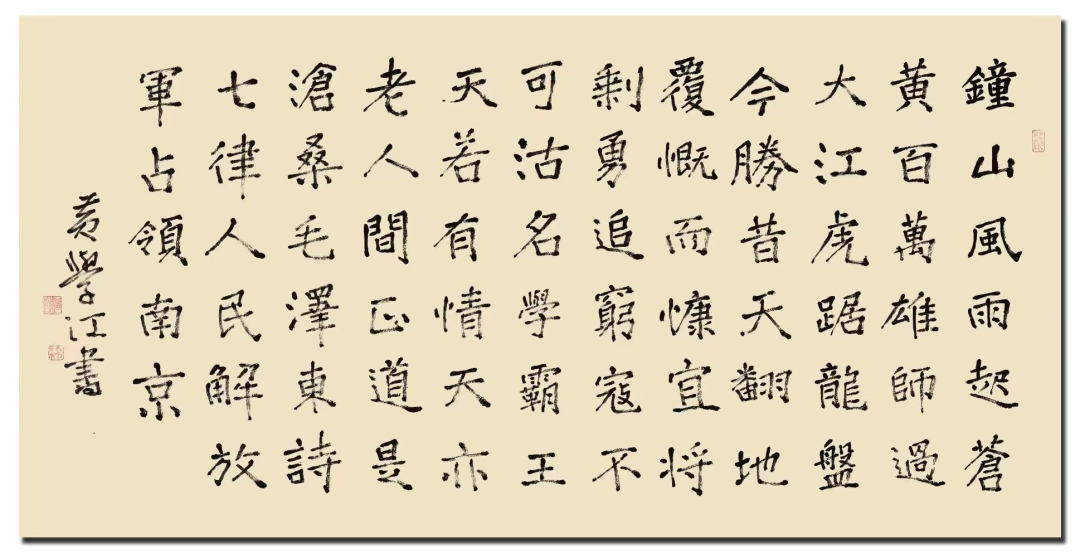 鐘山風雨起蒼
黃百萬雄師過
大江虎踞龍盤
今勝昔天翻地
覆慨而慷宜将
剩勇追窮寇不
可沽名學霸王
天若有情天亦
老人間正道是
滄桑毛澤東詩
七律人民解放
軍占領南京
黃學江書